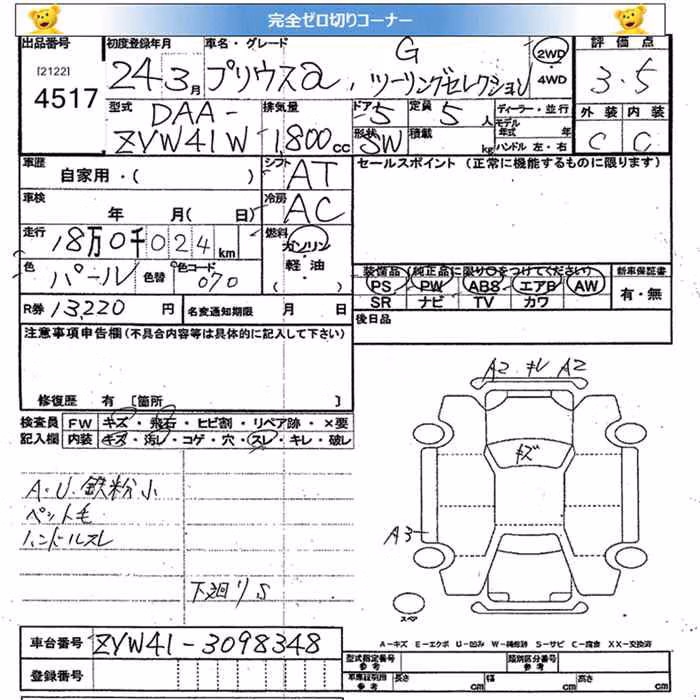 完全ゼロ切りコーナー
出品番号 初度登録年月 車名・グレード 評価点
[2122]
4517
24 3月 プリウスα, G ツーリングセレクション
2WD
4WD
3.5
型式 排気量 ドア 定員 ディーラー・並行 外装 内装
DAA-
ZVW41W 1,800cc
5 5人
モデル年式 年
形状 SW 積載 kg ハンドル 左・右
C C
車歴 シフト セールスポイント (正常に機能するものに限ります)
自家用・( ) AT
車検 冷房
年 月( 日) AC
走行 燃料
18万0千024km ガソリン
軽・油
色 色替 色コード
パール 070
装備品 (純正品に限り○をつけてください) 新車保証書
PS PW ABS エアB AW 有・無
SR ナビ TV カワ
R券 13,220円 名変通知期限 月 日 後日品
注意事項申告欄(不具合内容等は具体的に記入して下さい)
修復歴 有 [箇所 ]
検査員 FW キズ・飛石・ヒビ割・リペア跡・×要
記入欄 内装 キズ・汚レ・コゲ・穴・スレ・キレ・破レ
A2 キレ A2
キズ
A・U 鉄粉小
ペット毛
ハンドルスレ
A3
下廻りS
スペア
A-キズ E-エクボ U-凹み W-補修跡 S-サビ C-腐食 XX-交換済
車台番号 ZVW41-3098348
登録番号
型式指定番号 参考 類別区分番号 参考
車庫証明用 参考 長さ cm 幅 cm 高さ cm